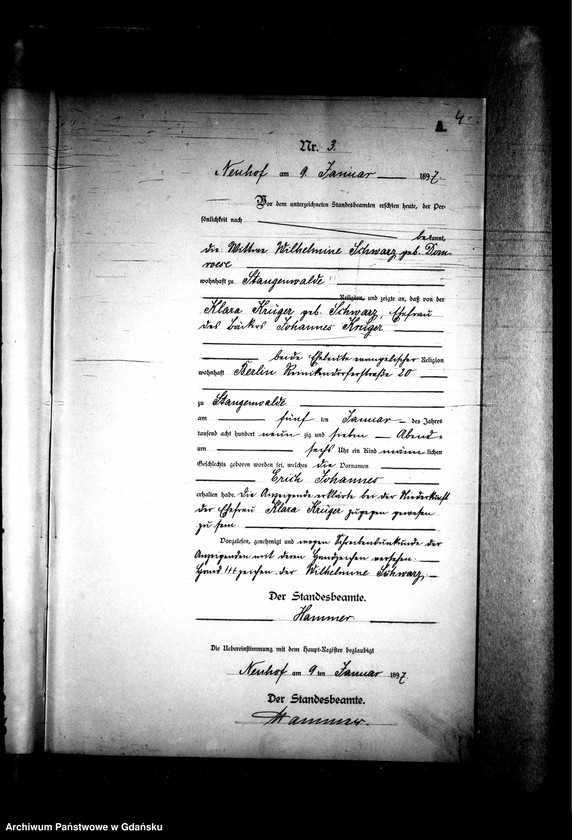 4.
A.
Nr. 3.
Neuhof am 9. Januar 1897.
Vor dem unterzeichneten Standesbeamten erschien heute, der Per-
sönlichkeit nach
bekannt,
die Wittwe Wilhelmine Schwarz, geb. Dom-
wohnhaft zu Stangenwalde
Religion, und zeigte an, daß von der
Klara Krüger geb. Schwarz, Ehefrau
des Bäckers Johannes Krüger
beide Eheleute evangelischer Religion
wohnhaft Berlin Reinikendorferstraße 20
zu Stangenwalde
am fünf ten Januar des Jahres
tausend acht hundert neun zig und sieben Abends
um sechs Uhr ein Kind männ lichen
Geschlechts geboren worden sei, welches die Vornamen
Erich Johannes
erhalten habe. Die Anzeigende erklärte bei der Niederkunft
der Ehefrau Klara Krüger zugegen gewesen
zu sein
Vorgelesen, genehmigt und wegen Schreibensunkunde der
Anzeigenden mit deren Handzeichen versehen.
Hand +++ zeichen der Wilhelmine Schwarz,
Der Standesbeamte.
Hammer
Die Uebereinstimmung mit dem Haupt-Register beglaubigt
Neuhof am 9 ten Januar 1897.
Der Standesbeamte.
Hammer.
Archiwum Państwowe w Gdańsku